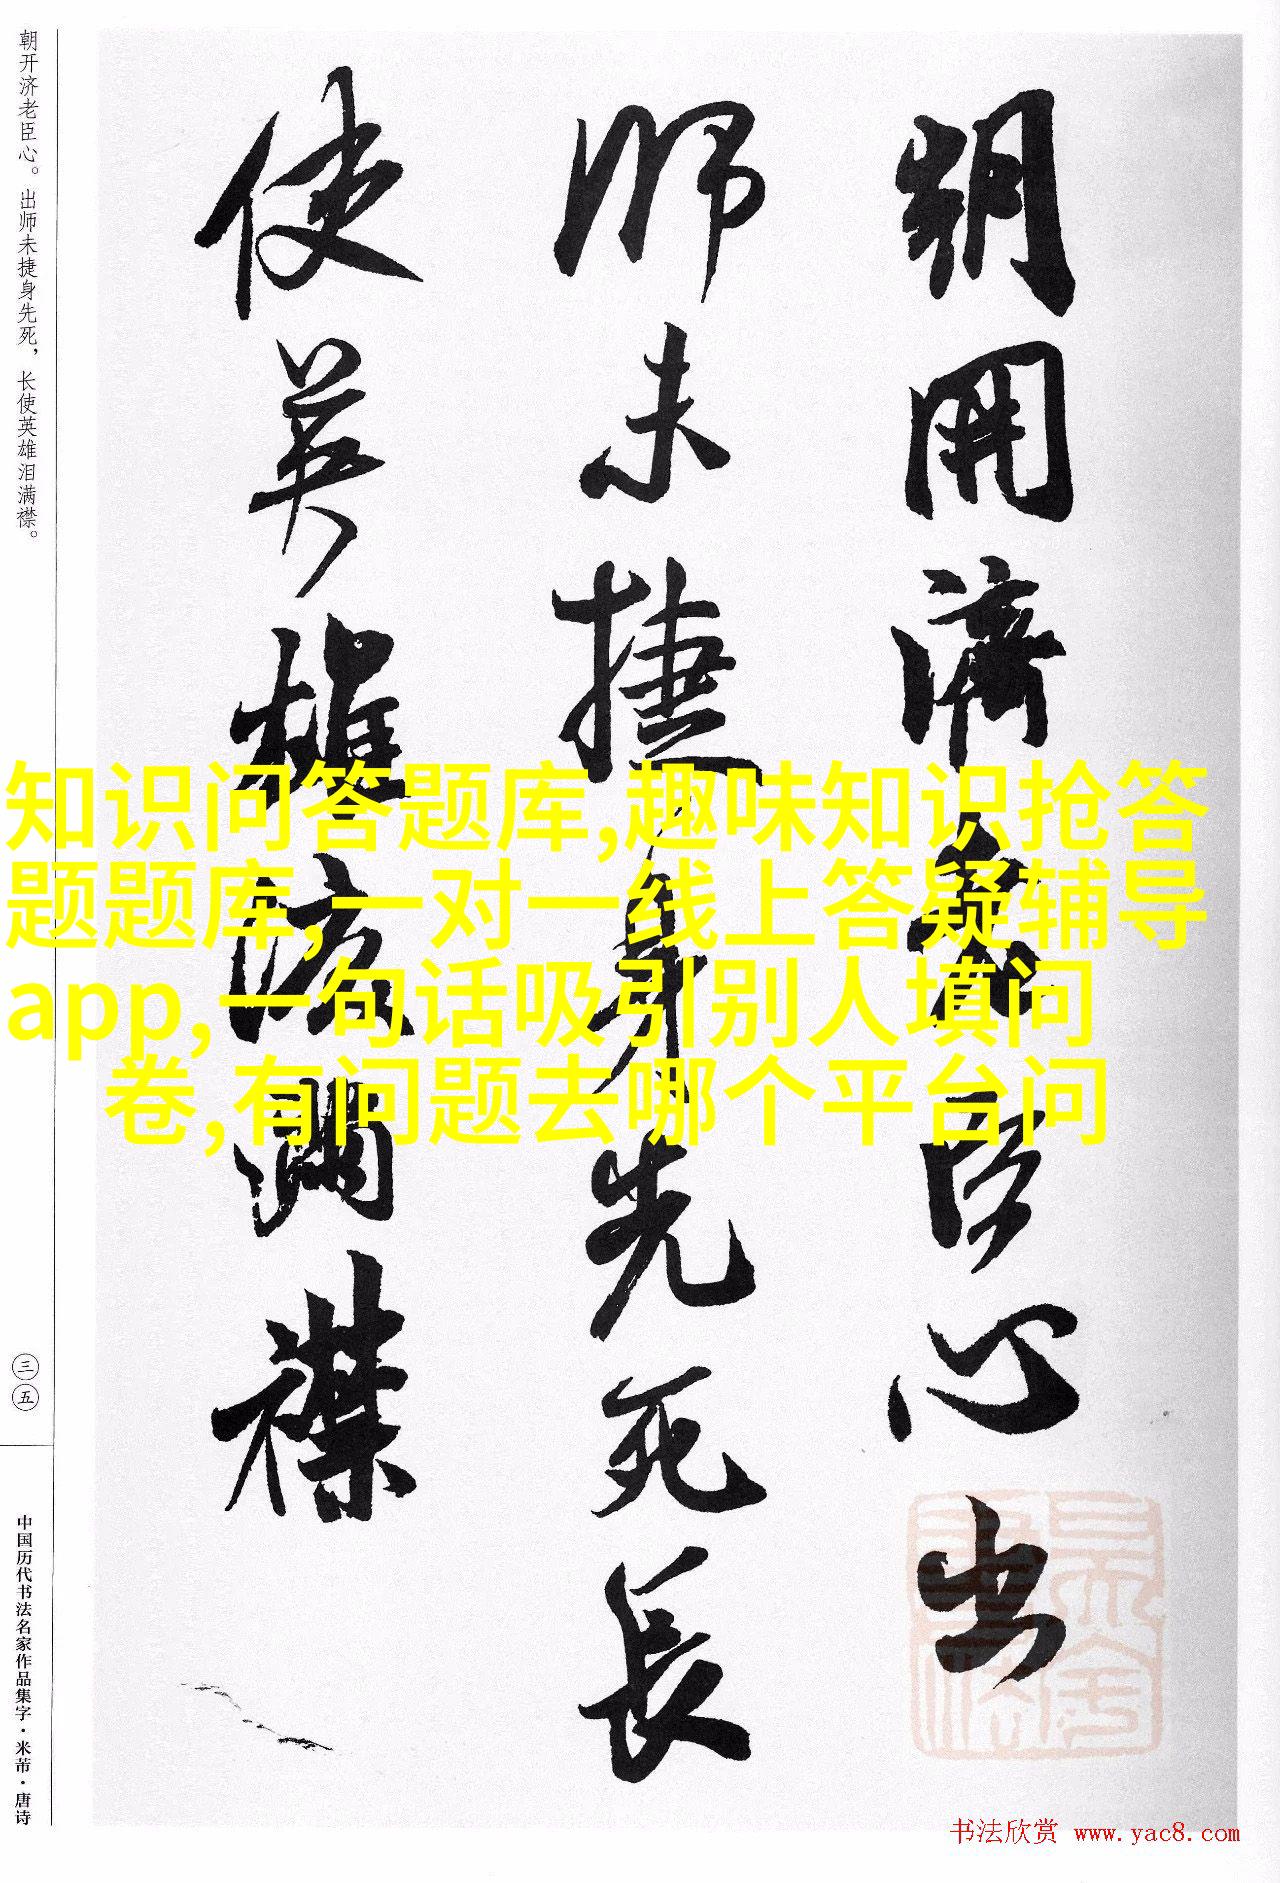 朝開濟老臣心出
師未捷身先死長
使英雄淚滿襟
朝开济老臣心。出师未捷身先死，长使英雄泪满襟。
三五
中国历代书法名家作品集字·米芾·唐诗
知识问答题库,趣味知识抢答
题题库,一对一线上答疑辅导
app,一句话吸引别人填问
卷,有问题去哪个平台问
书法欣赏 www.yac8.com